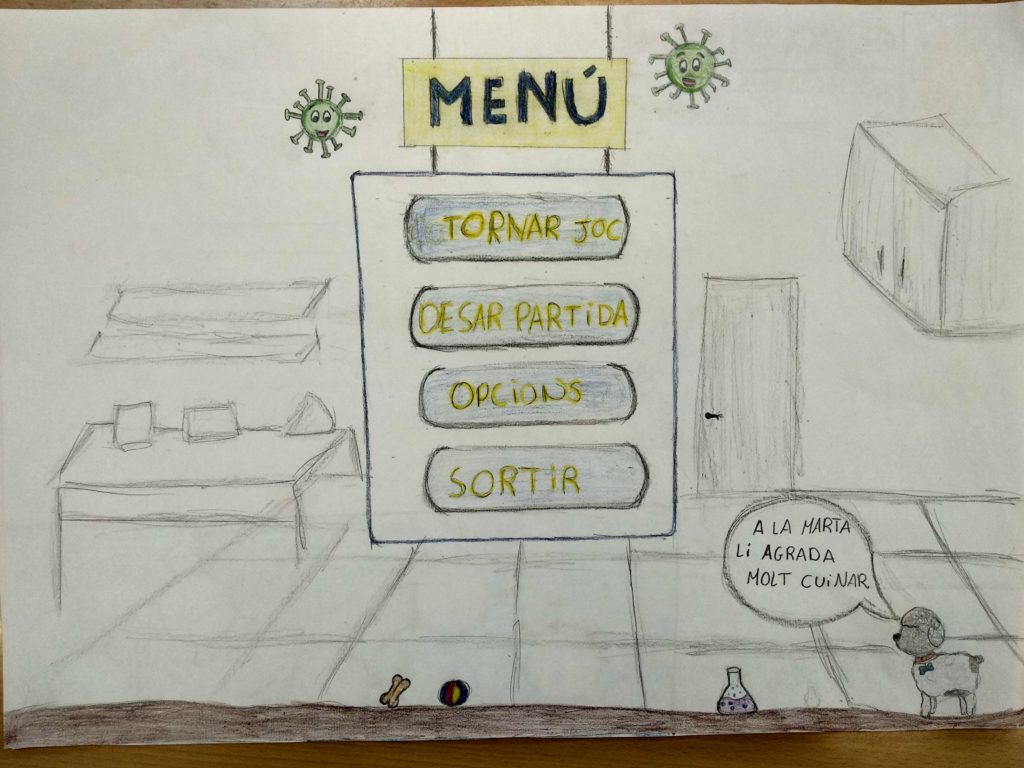 MENÚ
TORNAR JOC
DESAR PARTIDA
OPCIONS
SORTIR
A LA MARTA
LI AGRADA
MOLT CUINAR